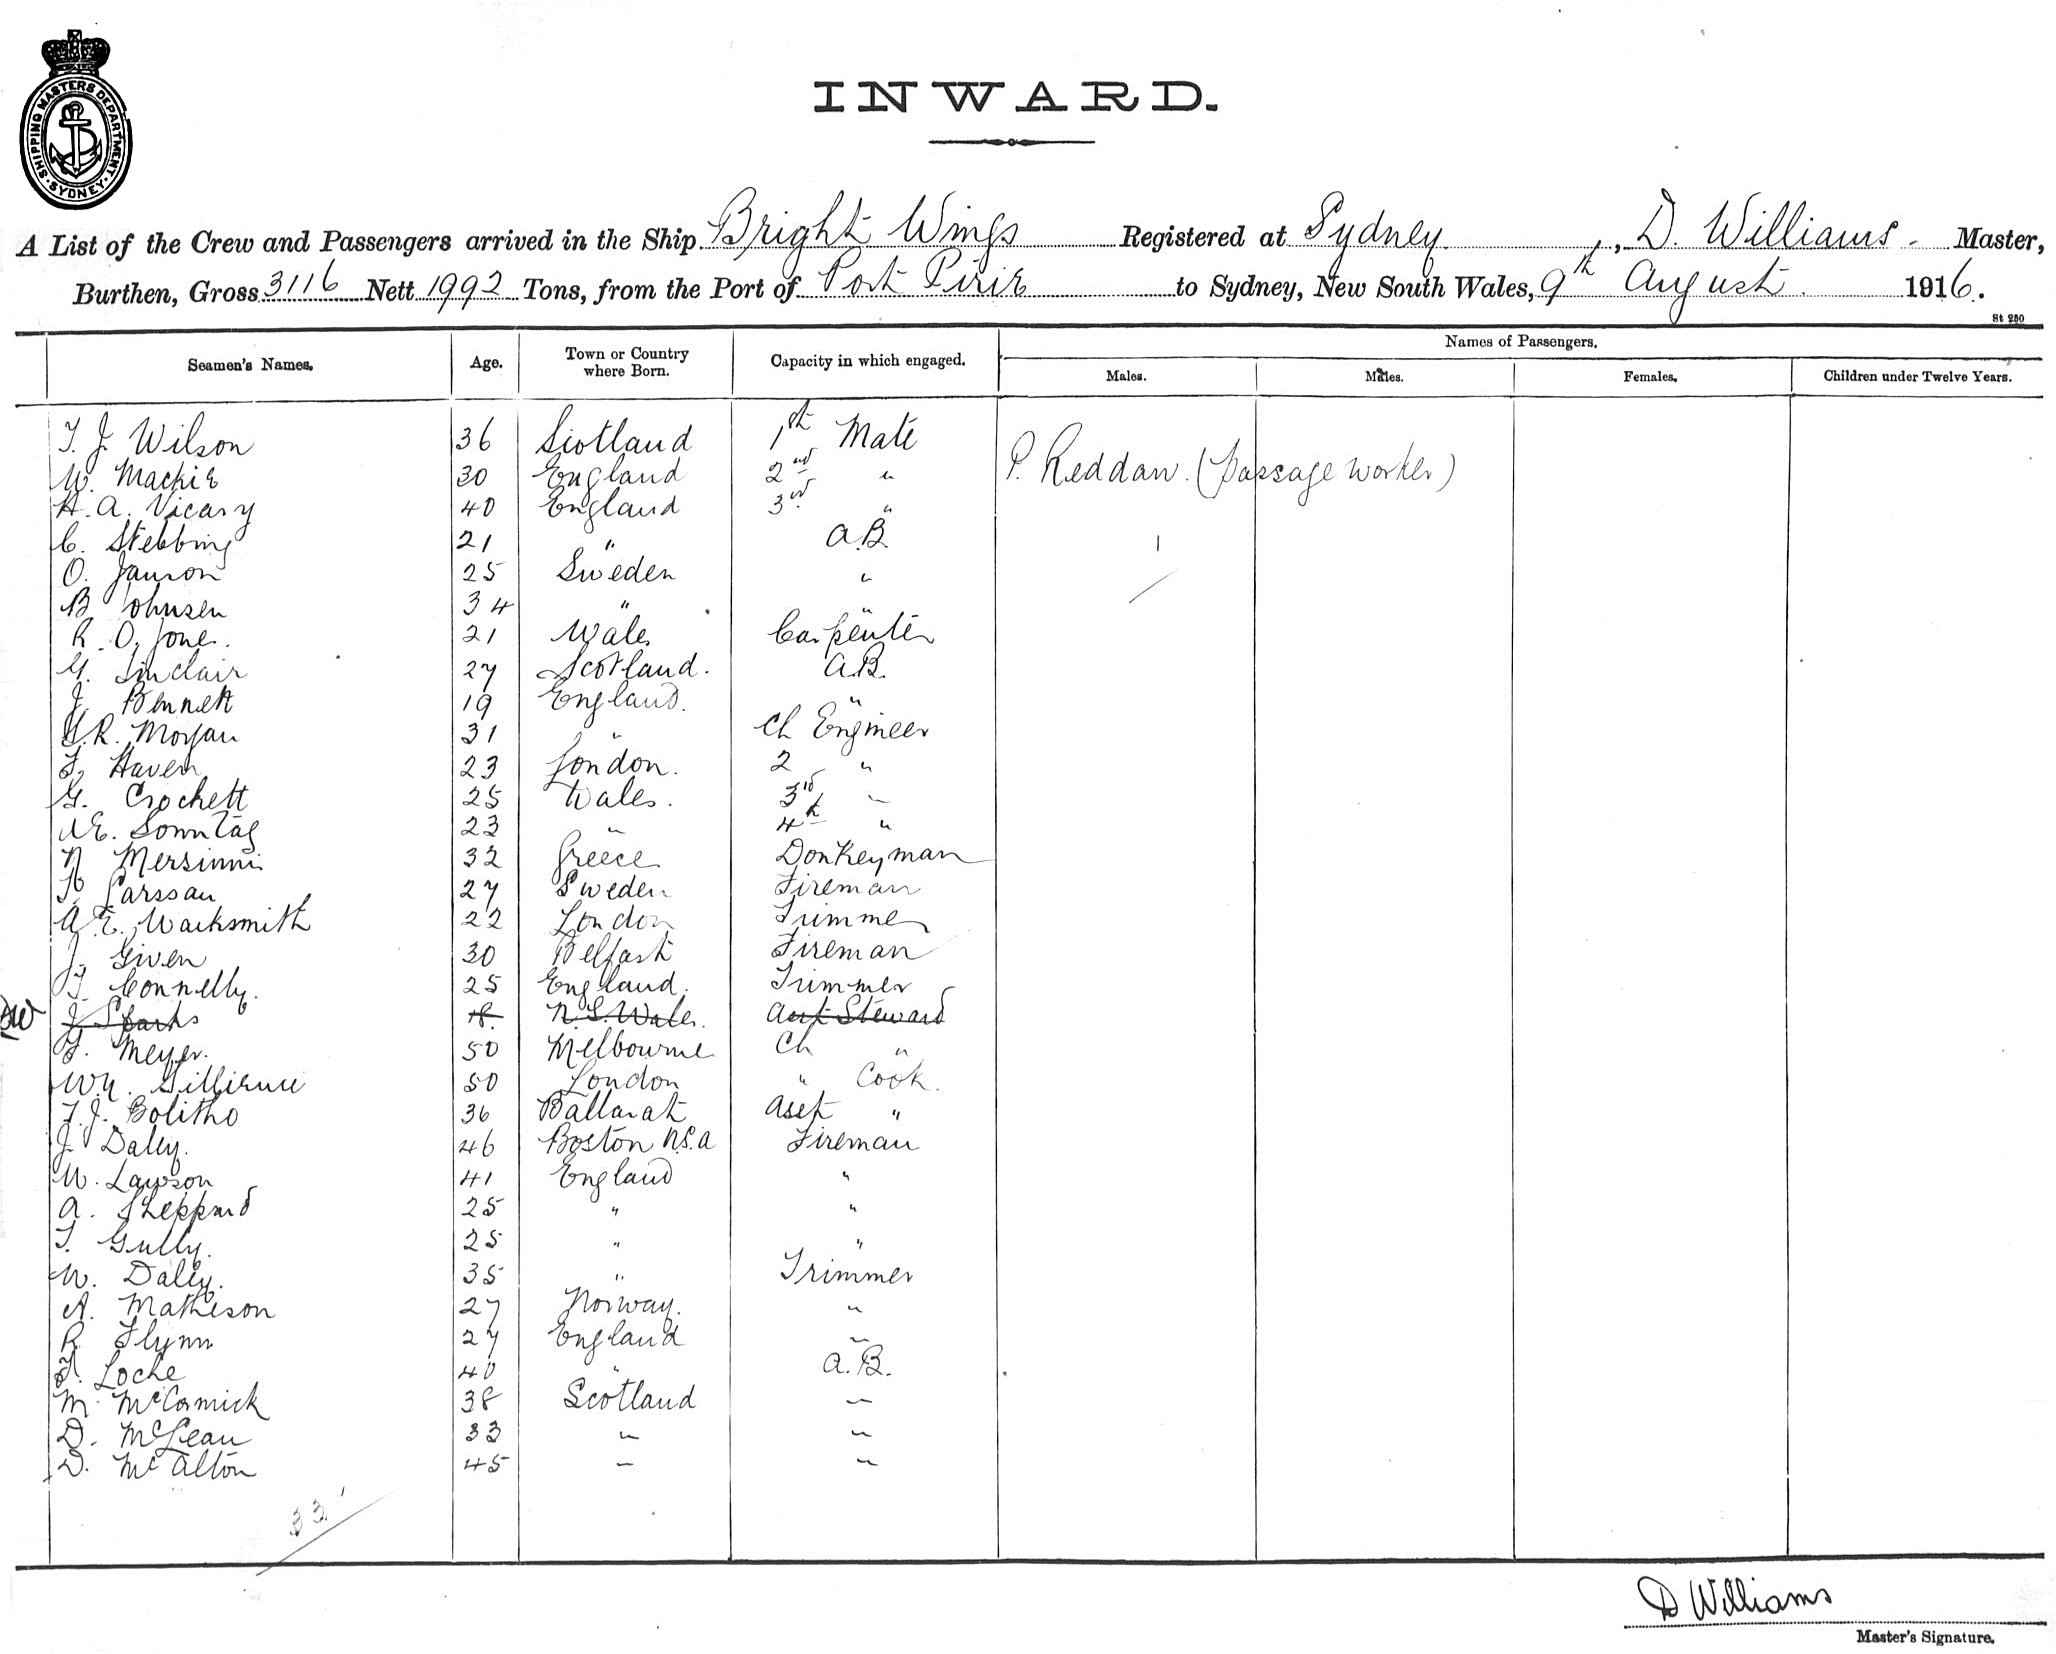 SHIPPING MASTERS DEPARTMENT · SYDNEY ·
INWARD.
A List of the Crew and Passengers arrived in the Ship Bright Wings Registered at Sydney, D. Williams Master,
Burthen, Gross 3116 Nett 1992 Tons, from the Port of Port Pirie to Sydney, New South Wales, 9th August 1916.
St 250
Seamen's Names. Age. Town or Country where Born. Capacity in which engaged. Names of Passengers.
Males. Males. Females. Children under Twelve Years.
T. J. Wilson 36 Scotland 1st Mate
W. Mackie 30 England 2nd " P. Reddan. (passage worker)
H. A. Vicary 40 England 3rd "
C. Stebbing 21 " A.B. 1
O. Janson 25 Sweden "
B Johnsen 34 " "
R. O. Jone. 21 Wales Carpenter
G. Sinclair 27 Scotland. A.B.
J. Bennett 19 England. "
G. R. Morgan 31 " Ch Engineer
F. Haven 23 London. 2 "
G. Crockett 25 Wales. 3rd "
Sonntag 23 " 4th "
N Mersinni 32 Greece Donkeyman
Larssan 27 Sweden Fireman
A. E. Warksmith 22 London Trimmer
J. Given 30 Belfast Fireman
J Connelly. 25 England. Trimmer
DW J Sparks 18. N. S. Wales. Asst Steward
F. Meyer. 50 Melbourne Ch "
50 London " Cook.
T. J. Bolitho 36 Ballarat Asst "
J Daley. 46 Boston U.S.A Fireman
W. Lawson 41 England "
A. Sheppard 25 " "
T. Gully. 25 " "
W. Daley. 35 " Trimmer
A. Matheson 27 Norway. "
R Flynn 27 England "
Locke 40 " A.B.
M. McCormick 38 Scotland "
D. McLean 33 " "
D. McAlton 45 " "
33
D Williams
Master's Signature.